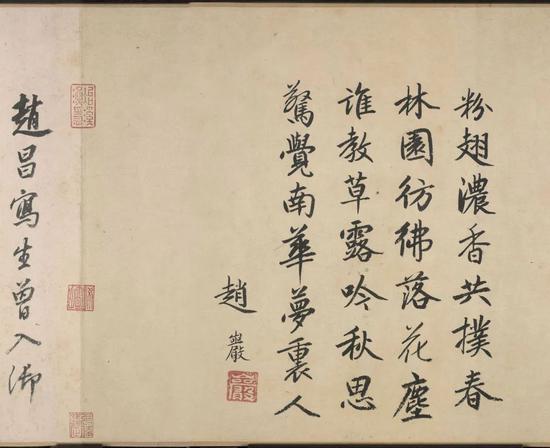 粉翅濃香共撲春
林園彷彿落花塵
誰教草露吟秋思
驚覺南華夢裏人
趙巖
趙昌寫生曾入御